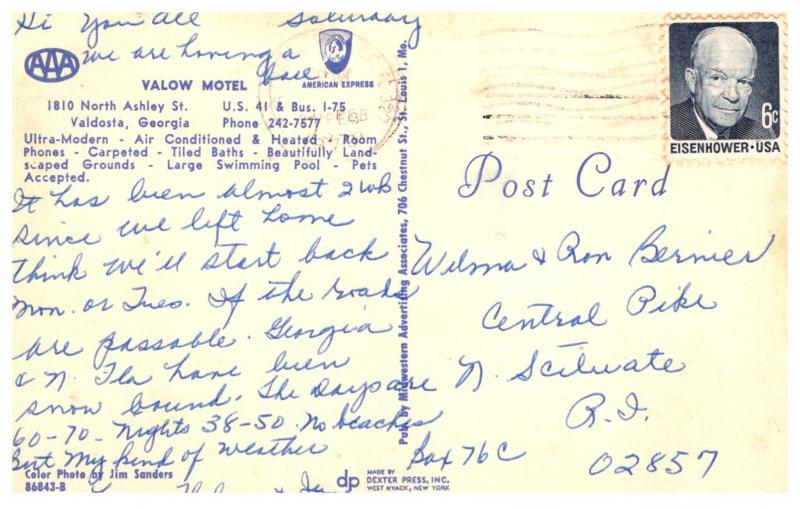 Hi You all Saturday
we are having a
ball
AAA
AMERICAN EXPRESS
VALOW MOTEL
1810 North Ashley St. U.S. 41 & Bus. I-75
Valdosta, Georgia Phone 242-7577
Ultra-Modern - Air Conditioned & Heated - Room
Phones - Carpeted - Tiled Baths - Beautifully Land-
scaped Grounds - Large Swimming Pool - Pets
Accepted.
It has been almost 2 wks
since we left home
think we'll start back
Mon. or Tues. If the roads
are passable. Georgia
& N. Fla have been
snow bound. The Days are
60-70 - Nights 38-50. No beaches
But My kind of weather
Color Photo by Jim Sanders
86843-B
dp
MADE BY
DEXTER PRESS, INC.
WEST NYACK, NEW YORK
Pub. by Midwestern Advertising Associates, 706 Chestnut St., St. Louis 1, Mo.
FEB
6c
EISENHOWER·USA
Post Card
Wilma & Ron Bernier
Central Pike
N. Scituate
R.I.
Box 76C
02857